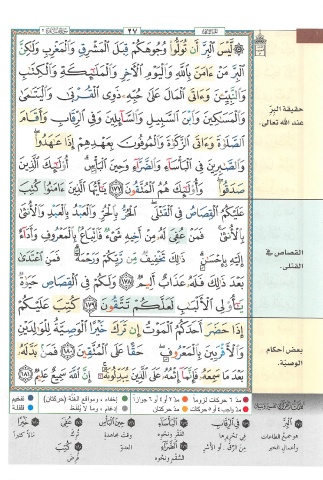 ٢٧
۞ لَّيْسَ الْبِرَّ أَن تُوَلُّوا وُجُوهَكُمْ قِبَلَ الْمَشْرِقِ وَالْمَغْرِبِ وَلَٰكِنَّ
الْبِرَّ مَنْ ءَامَنَ بِاللَّهِ وَالْيَوْمِ الْآخِرِ وَالْمَلَٰٓئِكَةِ وَالْكِتَٰبِ
وَالنَّبِيِّۦنَ وَءَاتَى الْمَالَ عَلَىٰ حُبِّهِۦ ذَوِى الْقُرْبَىٰ وَالْيَتَٰمَىٰ
وَالْمَسَٰكِينَ وَابْنَ السَّبِيلِ وَالسَّآئِلِينَ وَفِى الرِّقَابِ وَأَقَامَ
الصَّلَوٰةَ وَءَاتَى الزَّكَوٰةَ وَالْمُوفُونَ بِعَهْدِهِمْ إِذَا عَٰهَدُوا
وَالصَّٰبِرِينَ فِى الْبَأْسَآءِ وَالضَّرَّآءِ وَحِينَ الْبَأْسِ أُو۟لَٰٓئِكَ الَّذِينَ
صَدَقُوا وَأُو۟لَٰٓئِكَ هُمُ الْمُتَّقُونَ ١٧٧ يَٰٓأَيُّهَا الَّذِينَ ءَامَنُوا كُتِبَ
عَلَيْكُمُ الْقِصَاصُ فِى الْقَتْلَى الْحُرُّ بِالْحُرِّ وَالْعَبْدُ بِالْعَبْدِ وَالْأُنثَىٰ
بِالْأُنثَىٰ فَمَنْ عُفِىَ لَهُۥ مِنْ أَخِيهِ شَىْءٌ فَاتِّبَاعٌۢ بِالْمَعْرُوفِ وَأَدَآءٌ
إِلَيْهِ بِإِحْسَٰنٍ ذَٰلِكَ تَخْفِيفٌ مِّن رَّبِّكُمْ وَرَحْمَةٌ فَمَنِ اعْتَدَىٰ
بَعْدَ ذَٰلِكَ فَلَهُۥ عَذَابٌ أَلِيمٌ ١٧٨ وَلَكُمْ فِى الْقِصَاصِ حَيَوٰةٌ
يَٰٓأُو۟لِى الْأَلْبَٰبِ لَعَلَّكُمْ تَتَّقُونَ ١٧٩ كُتِبَ عَلَيْكُمْ
إِذَا حَضَرَ أَحَدَكُمُ الْمَوْتُ إِن تَرَكَ خَيْرًا الْوَصِيَّةُ لِلْوَٰلِدَيْنِ
وَالْأَقْرَبِينَ بِالْمَعْرُوفِ حَقًّا عَلَى الْمُتَّقِينَ ١٨٠ فَمَنۢ بَدَّلَهُۥ
بَعْدَ مَا سَمِعَهُۥ فَإِنَّمَآ إِثْمُهُۥ عَلَى الَّذِينَ يُبَدِّلُونَهُۥٓ إِنَّ اللَّهَ سَمِيعٌ عَلِيمٌ ١٨١
حقيقة البرّ
عند الله تعالى
القصاص في
القتلى.
بعض أحكام
الوصيّة.
مد ٦ حركات لزوماً
مد ٢ أو ٤ أو ٦ جوازاً
إخفاء، ومواقع الغنّة (حركتان)
تفخيم
مد واجب ٤ أو ٥ حركات
مد حركتان
إدغام، وما لا يُلفظ
قلقلة